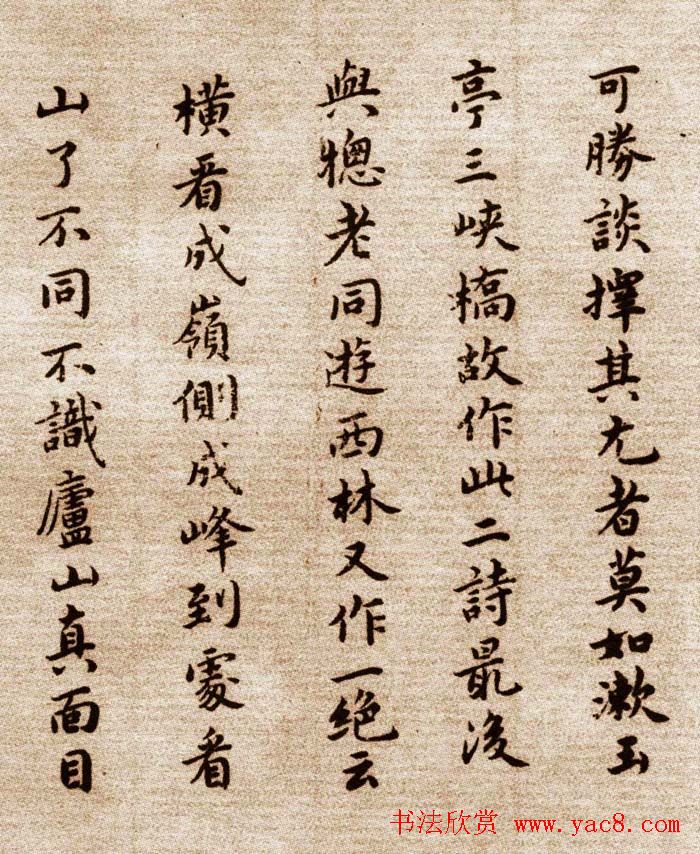 可勝談擇其尤者莫如漱玉
亭三峡橋故作此二詩最後
與聰老同遊西林又作一絕云
橫看成嶺側成峰到處看
山了不同不識廬山真面目
书法欣赏 www.yac8.com